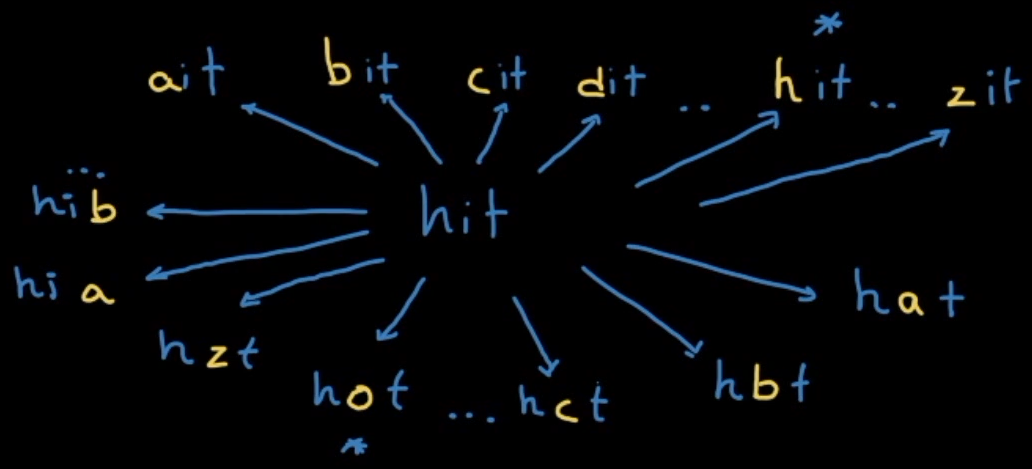 *
ait bit cit dit .. hit .. zit
...
hib hit
hia hat
hzt hot ... hct hbt
*